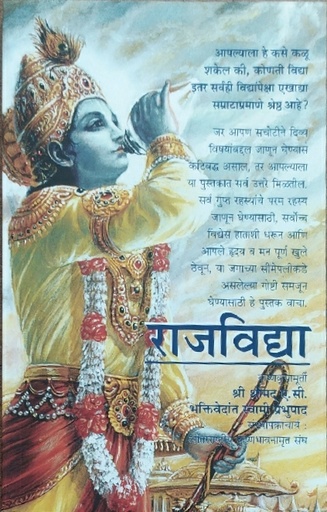 आपल्याला हे कसे कळू
शकेल की, कोणती विद्या
इतर सर्वही विद्यांपेक्षा एखाद्या
सम्राटाप्रमाणे श्रेष्ठ आहे?
जर आपण सचोटीने दिव्य
विषयांबद्दल जाणून घेण्यास
कटिबद्ध असाल, तर आपल्याला
या पुस्तकात सर्व उत्तरे मिळतील.
सर्व गुप्त रहस्यांचे परम रहस्य
जाणून घेण्यासाठी, सर्वोच्च
विद्येस हाताशी धरून आणि
आपले हृदय व मन पूर्ण खुले
ठेवून, या जगाच्या सीमेपलीकडे
असलेल्या गोष्टी समजून
घेण्यासाठी हे पुस्तक वाचा.
राजविद्या
श्री श्रीमद् ए.सी.
भक्तिवेदांत स्वामी प्रभुपाद